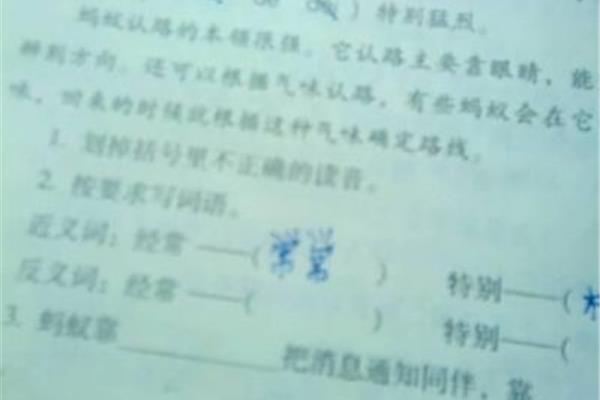 ）特别猛烈。
蚂蚁认路的本领很强。它认路主要靠眼睛，能
辨别方向。还可以根据气味认路，有些蚂蚁会在它
味，回来的时候就根据这种气味确定路线。
1. 划掉括号里不正确的读音。
2. 按要求写词语。
近义词：经常——（常常） 特别——（
反义词：经常——（ ） 特别——（
3. 蚂蚁靠____________把消息通知同伴，靠